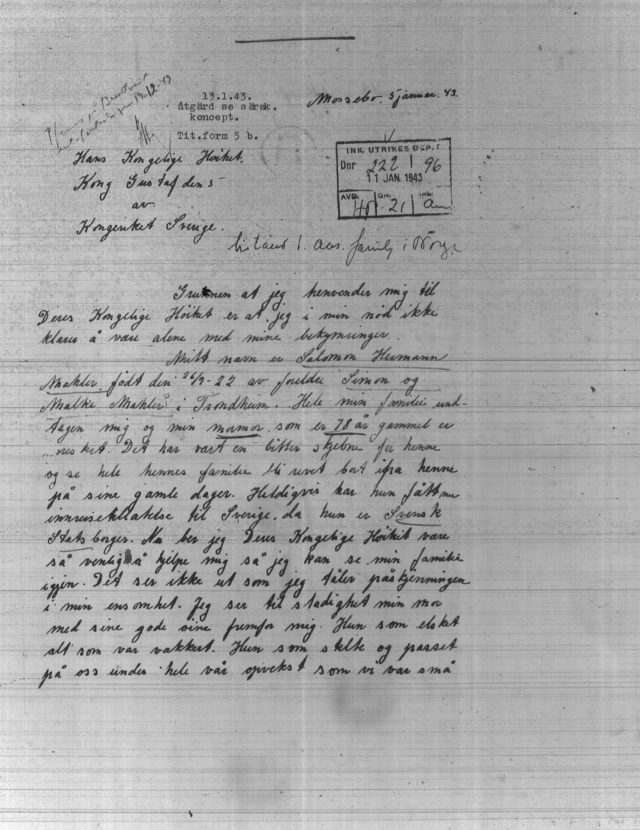 13.1.43.
åtgärd se särsk.
koncept.
Tit.form 5 b.
Mossebo. 5 januar. 43.
INK. UTRIKES DEP.T
Dnr 222 96
11 JAN. 1943
AVD. Grp.
21
Hans Kongelige Høihet.
Kong Gustaf den 5
av
Kongeriket Sverige.
bistånd t. ans. familj i Norge
Grunnen at jeg henvender mig til
Deres Kongelige Høihet er at jeg i min nød ikke
klarer å være alene med mine bekymringer.
Mitt navn er Salomon Hermann
Mahler. født den 26/9-22 av foreldre Simon og
Malke Mahler i Trondheim. Hele min familie und-
tagen mig og min mormor som er 78 år gammel er
Det har vært en bitter skjebne for henne
og se hele hennes familie bli revet bort ifra henne
på sine gamle dager. Heldigvis har hun fått nu
innreisetillatelse til Sverige, da hun er Svensk
Statsborger. Nu ber jeg Deres Kongelige Høihet være
så venlig å hjelpe mig så jeg kan se min familie
igjen. Det ser ikke ut som jeg tåler påkjenningen
i min ensomhet. Jeg ser til stadighet min mor
med sine gode øine fremfor mig. Hun som elsket
alt som var vakkert. Hun som stelte og passet
på oss under hele vår opvekst som vi var små